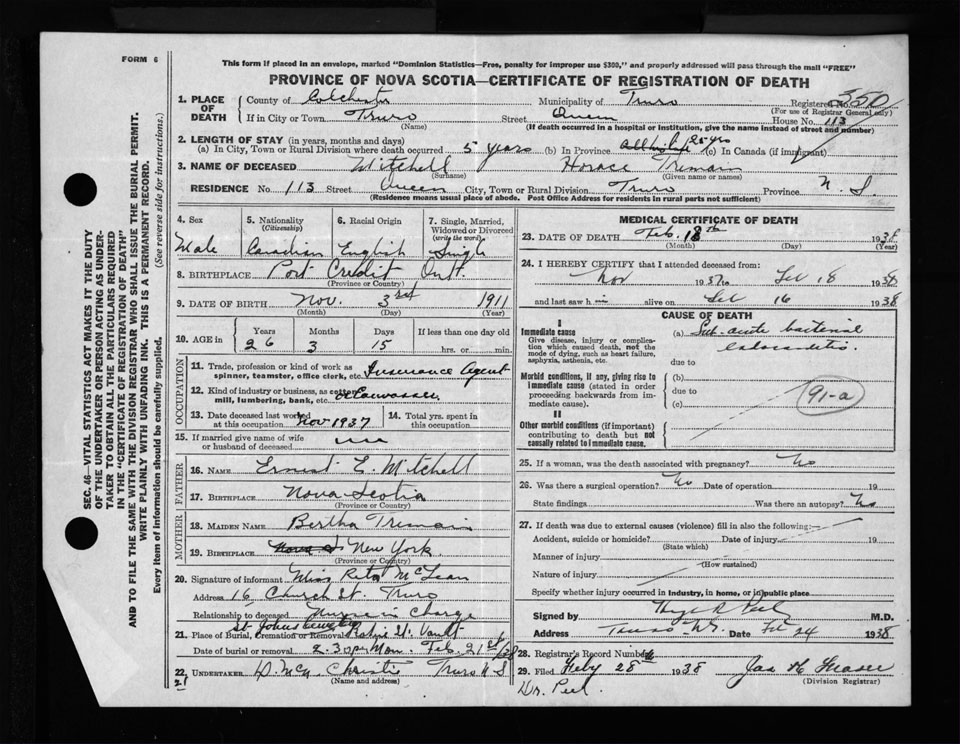 FORM 6
This form if placed in an envelope, marked "Dominion Statistics—Free, penalty for improper use $300," and properly addressed will pass through the mail "FREE"
PROVINCE OF NOVA SCOTIA—CERTIFICATE OF REGISTRATION OF DEATH
1. PLACE OF DEATH
County of Colchester Municipality of Truro Registered No. 350
(For use of Registrar General only)
If in City or Town Truro Street Queen House No. 113
(Name) (If death occurred in a hospital or institution, give the name instead of street and number)
2. LENGTH OF STAY (in years, months and days)
(a) In City, Town or Rural Division where death occurred 5 years (b) In Province 25 yrs (c) In Canada (if immigrant)
3. NAME OF DECEASED Mitchell Horace Tremain
(Surname) (Given name or names)
RESIDENCE No. 113 Street Queen City, Town or Rural Division Truro Province N. S.
(Residence means usual place of abode. Post Office Address for residents in rural parts not sufficient)
4. Sex
Male
5. Nationality
(Citizenship)
Canadian
6. Racial Origin
English
7. Single, Married, Widowed or Divorced
(write the word)
Single
8. BIRTHPLACE Port Credit Ont.
(Province or Country)
9. DATE OF BIRTH Nov. 3rd 1911
(Month) (Day) (Year)
10. AGE in
Years Months Days If less than one day old
26 3 15 hrs. or min.
OCCUPATION
11. Trade, profession or kind of work as spinner, teamster, office clerk, etc. Insurance Agent
12. Kind of industry or business, as cotton mill, lumbering, bank, etc.
13. Date deceased last worked at this occupation Nov 1937
14. Total yrs. spent in this occupation
15. If married give name of wife or husband of deceased
FATHER
16. NAME Ernest E. Mitchell
17. BIRTHPLACE Nova Scotia
(Province or Country)
MOTHER
18. MAIDEN NAME Bertha Tremain
19. BIRTHPLACE New York
(Province or Country)
20. Signature of informant Miss Reta McLean
Address 16 Church St. Truro
Relationship to deceased Nurse in Charge
St Johns Cemetery
21. Place of Burial, Cremation or Removal Robie St. Vault
Date of burial or removal 2.30 pm Mon. Feb. 21st/38
22. UNDERTAKER D. McN. Christie Truro N S
(Name and address)
21
MEDICAL CERTIFICATE OF DEATH
23. DATE OF DEATH Feb. 18th 1938
(Month) (Day) (Year)
24. I HEREBY CERTIFY that I attended deceased from:
Nov 1937 to Feb 18 1938
and last saw him alive on Feb 16 1938
CAUSE OF DEATH
I
Immediate cause
Give disease, injury or complication which caused death, not the mode of dying, such as heart failure, asphyxia, asthenia, etc.
(a) Sub-acute bacterial endocarditis.
due to
Morbid conditions, if any, giving rise to immediate cause (stated in order proceeding backwards from immediate cause).
(b)
due to
(c)
91-a
II
Other morbid conditions (if important) contributing to death but not causally related to immediate cause.
25. If a woman, was the death associated with pregnancy? No
26. Was there a surgical operation? No Date of operation 19
State findings Was there an autopsy? No
27. If death was due to external causes (violence) fill in also the following:—
Accident, suicide or homicide? Date of injury 19
(State which)
Manner of injury
(How sustained)
Nature of injury
Specify whether injury occurred in industry, in home, or in public place
Signed by M.D.
Address Truro N.S. Date Feb 24 1938
28. Registrar's Record Number
29. Filed Feby 28th 1938 Jas H Fraser
(Division Registrar)
Dr. Peel.
SEC. 46—VITAL STATISTICS ACT MAKES IT THE DUTY
OF THE UNDERTAKER OR PERSON ACTING AS UNDERTAKER TO OBTAIN ALL THE PARTICULARS REQUIRED
IN THE "CERTIFICATE OF REGISTRATION OF DEATH"
AND TO FILE THE SAME WITH THE DIVISION REGISTRAR WHO SHALL ISSUE THE BURIAL PERMIT.
WRITE PLAINLY WITH UNFADING INK. THIS IS A PERMANENT RECORD.
Every item of information should be carefully supplied. (See reverse side for instructions.)